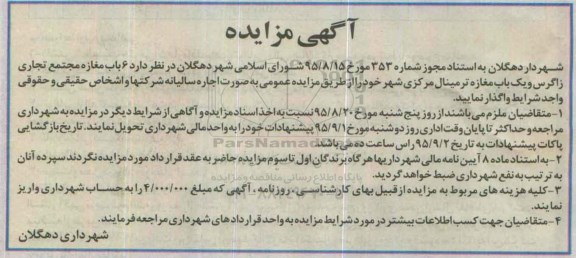 آگهی مزایده
شهردار دهگلان به استناد مجوز شماره ۳۵۳ مورخ ۹۵/۸/۱۵ شورای اسلامی شهر دهگلان در نظر دارد ۶ باب مغازه مجتمع تجاری
زاگرس و یک باب مغازه ترمینال مرکزی شهر خود را از طریق مزایده عمومی به صورت اجاره سالیانه شرکتها و اشخاص حقیقی و حقوقی
واجد شرایط واگذار نمایید.
۱-متقاضیان ملزم می باشند از روز پنج شنبه مورخ ۹۵/۸/۲۰ نسبت به اخذ اسناد مزایده و آگاهی از شرایط دیگر در مزایده به شهرداری
مراجعه و حداکثر تا پایان وقت اداری روز دوشنبه مورخ ۹۵/۹/۱ پیشنهادات خود را به واحد مالی شهرداری تحویل نمایند. تاریخ بازگشایی
پاکات پیشنهادات به تاریخ ۹۵/۹/۲ راس ساعت ده می باشد.
۲-به استناد ماده ۸ آیین نامه مالی شهرداریها هرگاه برندگان اول تا سوم مزایده حاضر به عقد قرارداد مورد مزایده نگردند سپرده آنان
به ترتیب به نفع شهرداری ضبط خواهد گردید.
۳-کلیه هزینه های مربوط به مزایده از قبیل بهای کارشناسی، روزنامه، آگهی که مبلغ ۴/۰۰۰/۰۰۰ را به حساب شهرداری واریز
نمایند.
۴-متقاضیان جهت کسب اطلاعات بیشتر در مورد شرایط مزایده به واحد قراردادهای شهرداری مراجعه فرمایند.
شهرداری دهگلان